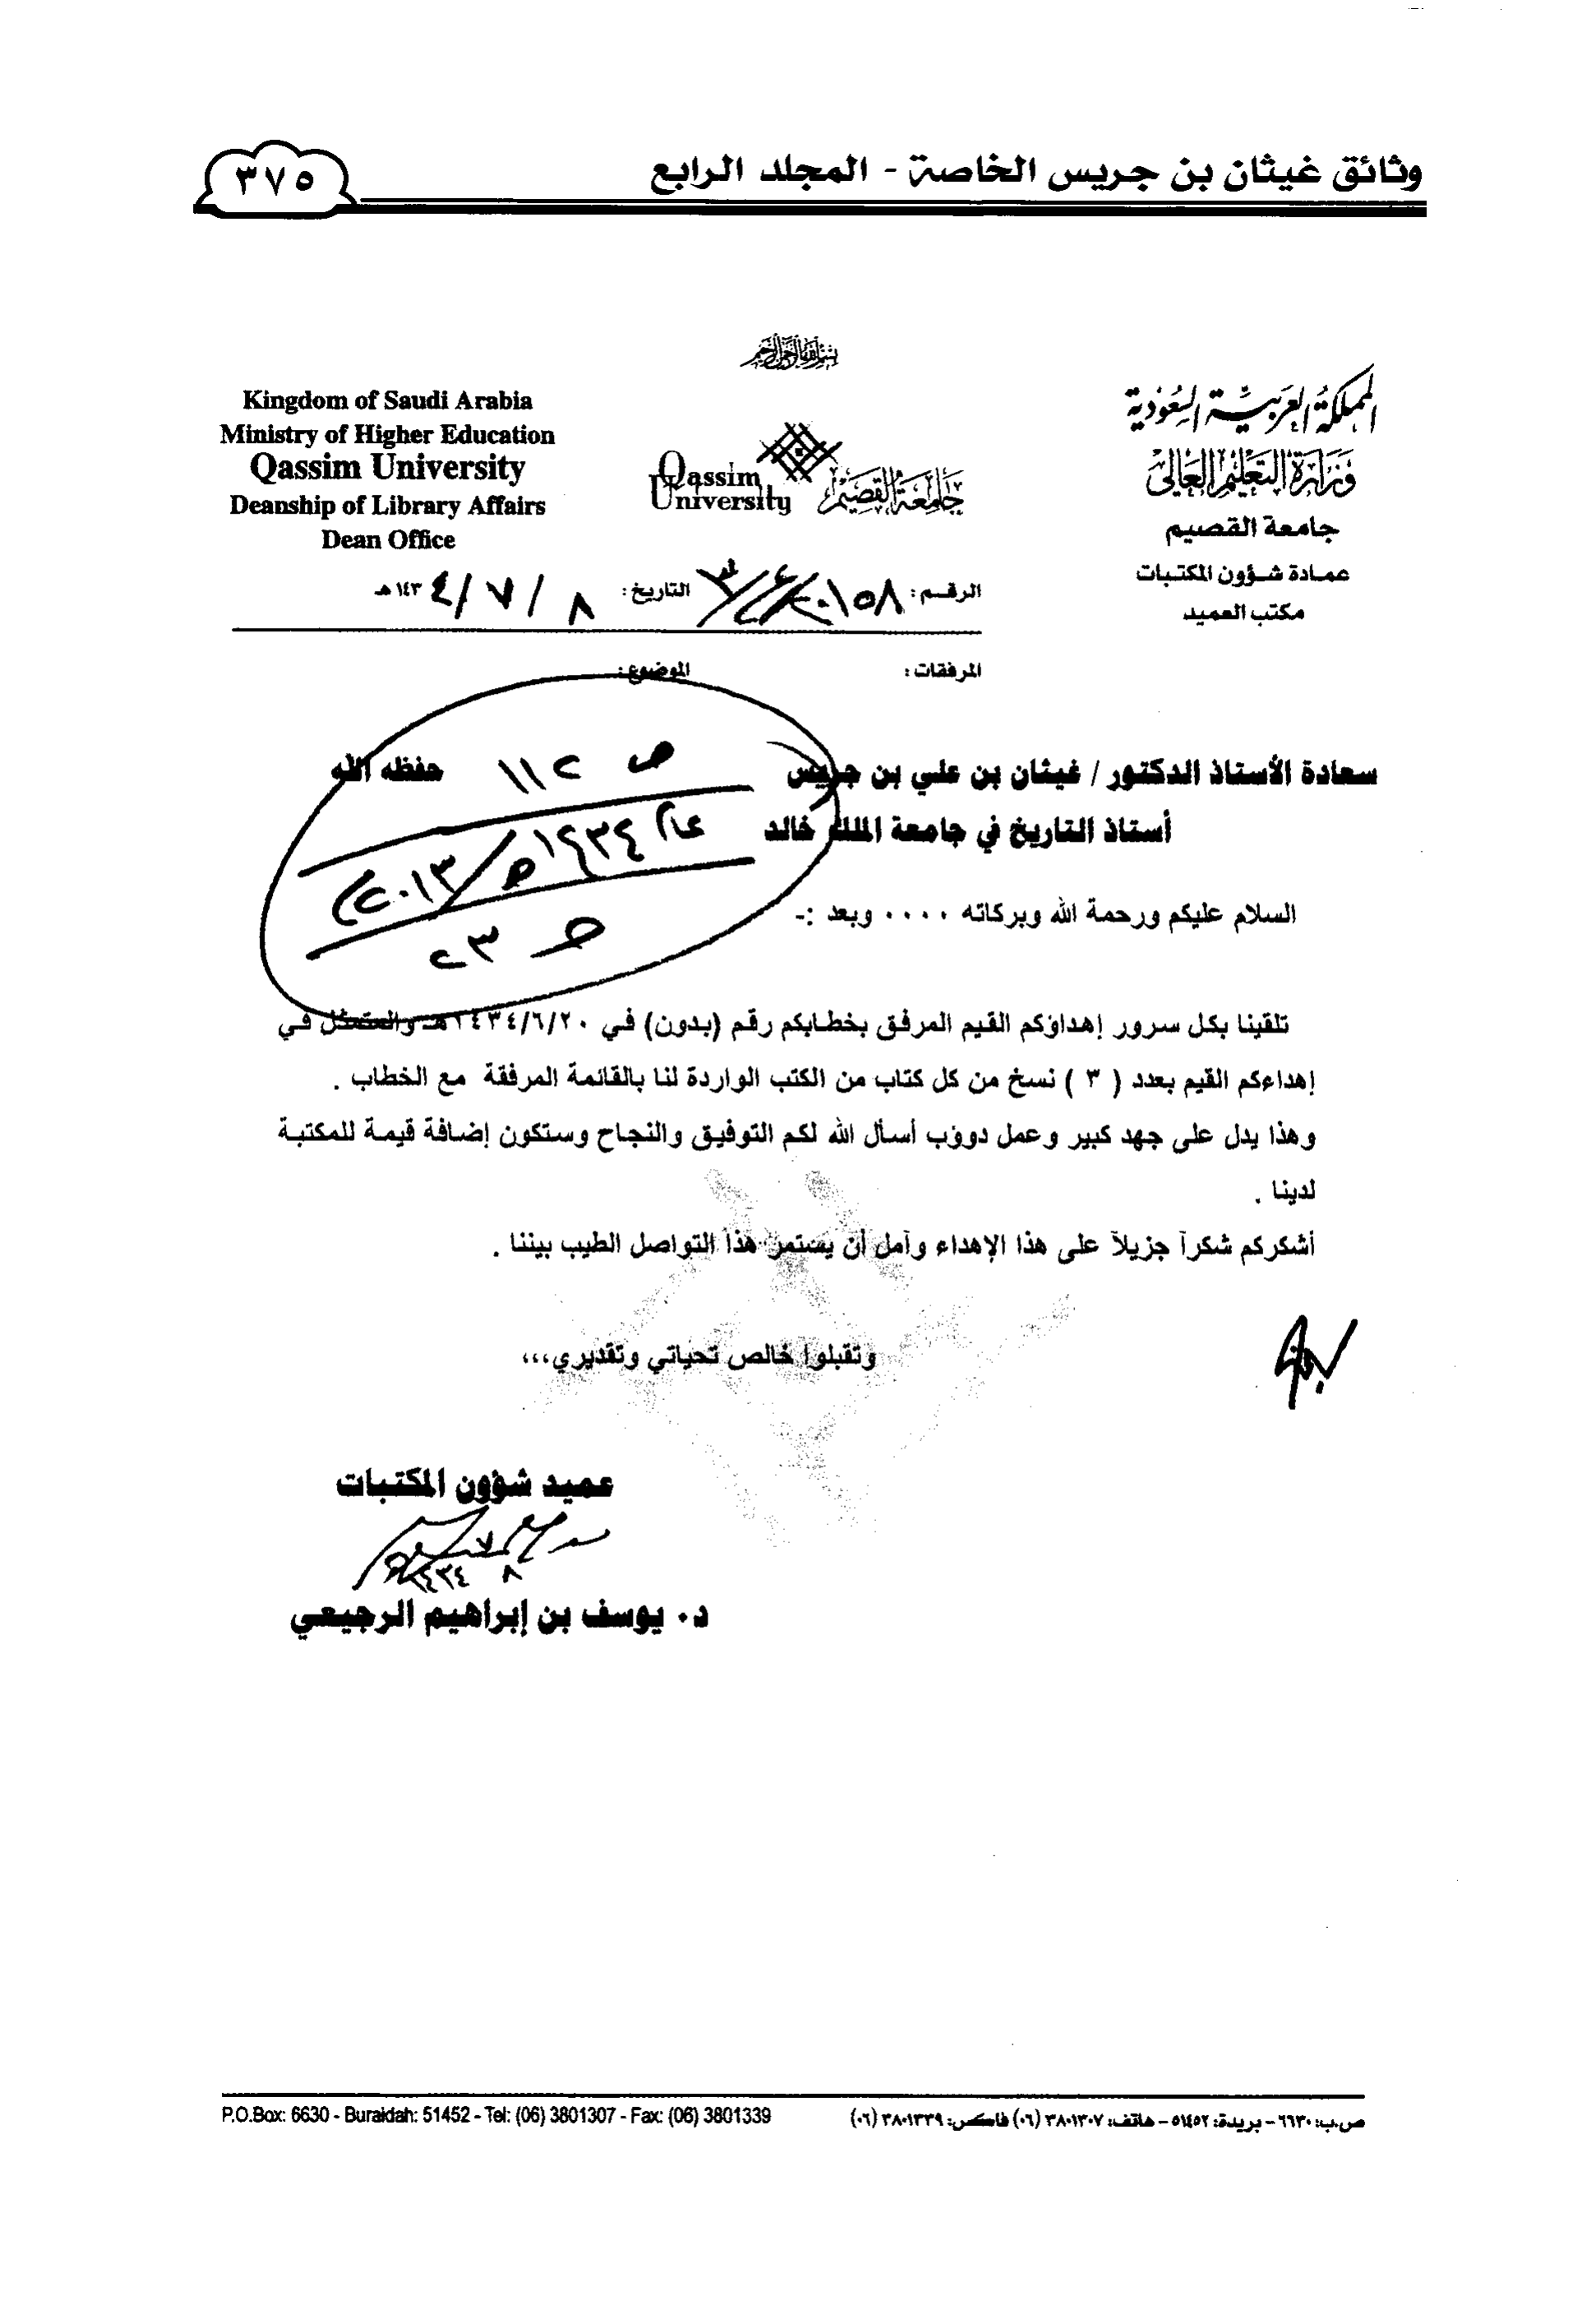 وثائق غيثان بن جريس الخاصة - المجلد الرابع
٣٧٥
بسم الله الرحمن الرحيم
المملكة العربية السعودية
وزارة التعليم العالي
جامعة القصيم
عمادة شؤون المكتبات
مكتب العميد
Qassim University
جامعة القصيم
Kingdom of Saudi Arabia
Ministry of Higher Education
Qassim University
Deanship of Library Affairs
Dean Office
الرقم: التاريخ: ٨ / ٧ / ١٤٣٤ هـ
المرفقات: الموضوع:
سعادة الأستاذ الدكتور / غيثان بن علي بن جريس حفظه الله
أستاذ التاريخ في جامعة الملك خالد
ص ٢١١
عام ١٤٣٤هـ / ٢٠١٣م
ح ٢٣
السلام عليكم ورحمة الله وبركاته ٠٠٠٠ وبعد :-
تلقينا بكل سرور إهداؤكم القيم المرفق بخطابكم رقم (بدون) في ١٤٣٤/٦/٢٠هـ والمتمثل في
إهداءكم القيم بعدد ( ٣ ) نسخ من كل كتاب من الكتب الواردة لنا بالقائمة المرفقة مع الخطاب .
وهذا يدل على جهد كبير وعمل دوؤب أسأل الله لكم التوفيق والنجاح وستكون إضافة قيمة للمكتبة
لدينا .
أشكركم شكراً جزيلاً على هذا الإهداء وآمل أن يستمر هذا التواصل الطيب بيننا .
وتقبلوا خالص تحياتي وتقديري،،،
عميد شؤون المكتبات
د. يوسف بن إبراهيم الرجيعي
P.O.Box: 6630 - Buraidah: 51452 - Tel: (06) 3801307 - Fax: (06) 3801339
ص.ب: ٦٦٣٠ - بريدة: ٥١٤٥٢ - هاتف: ٣٨٠١٣٠٧ (٠٦) فاكس: ٣٨٠١٣٣٩ (٠٦)